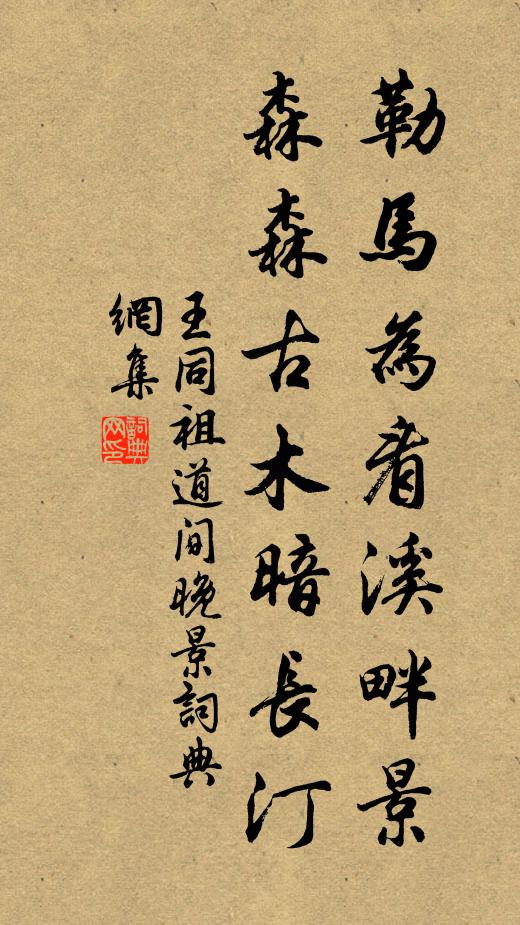 勒馬為看溪畔景
森森古木暗長汀
王同祖道間晚景詞典
網集
詞典網印